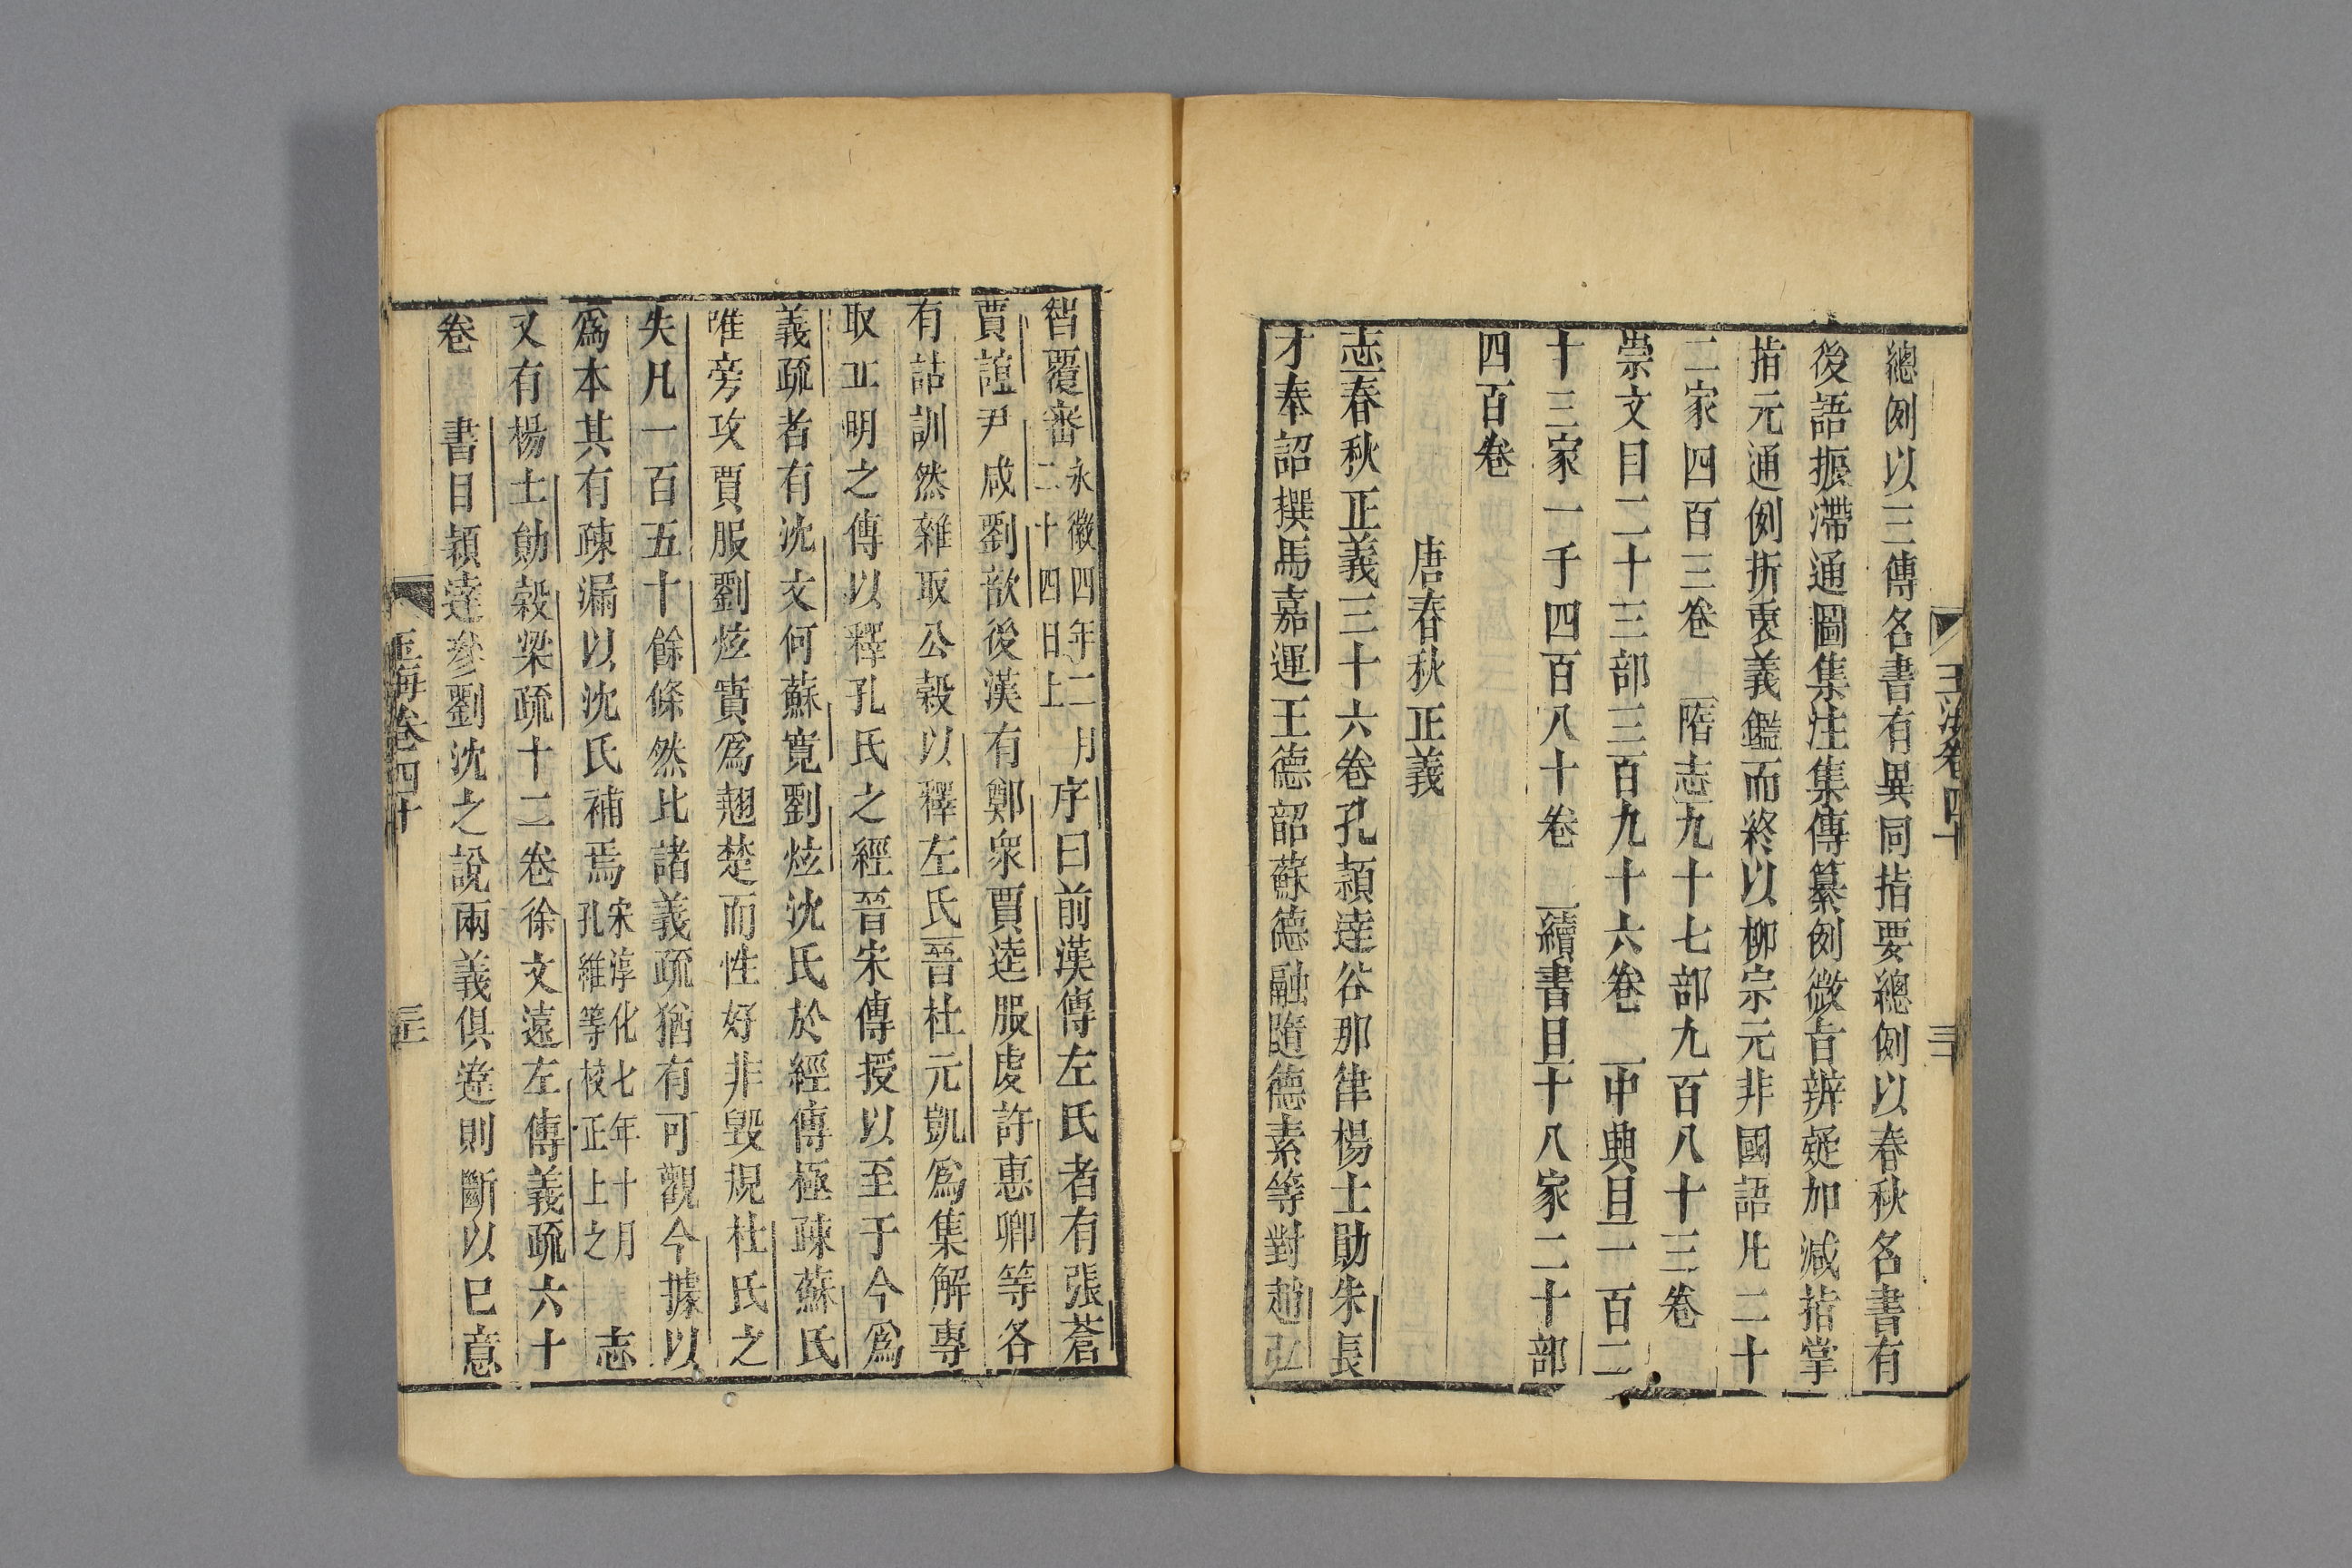 總例以三傳名書有異同指要總例以春秋名書有
後語振滯通圖集注集傳纂例微旨辨疑加減指掌
指元通例折衷義鑑而終以柳宗元非國語凡二十
二家四百三卷 隋志九十七部九百八十三卷
崇文目二十三部三百九十六卷 中興目一百二
十三家一千四百八十卷 續書目十八家二十部
四百卷
唐春秋正義
志春秋正義三十六卷孔穎達谷那律楊士勛朱長
才奉詔撰馬嘉運王德韶蘇德融隨德素等對趙弘
智覆審永徽四年二月二十四日上序曰前漢傳左氏者有張蒼
賈誼尹咸劉歆後漢有鄭衆賈逵服虔許惠卿等各
有詁訓然雜取公穀以釋左氏晉杜元凱爲集解專
取丘明之傳以釋孔氏之經晉宋傳授以至于今爲
義疏者有沈文何蘇寬劉炫沈氏於經傳極疎蘇氏
唯旁攻賈服劉炫實爲翹楚而性好非毀規杜氏之
失凡一百五十餘條然比諸義疏猶有可觀今據以
爲本其有疎漏以沈氏補焉宋淳化七年十月孔維等校正上之 志
又有楊士勛穀梁疏十二卷徐文遠左傳義疏六十
卷 書目穎達參劉沈之說兩義俱違則斷以已意
玉海卷四十